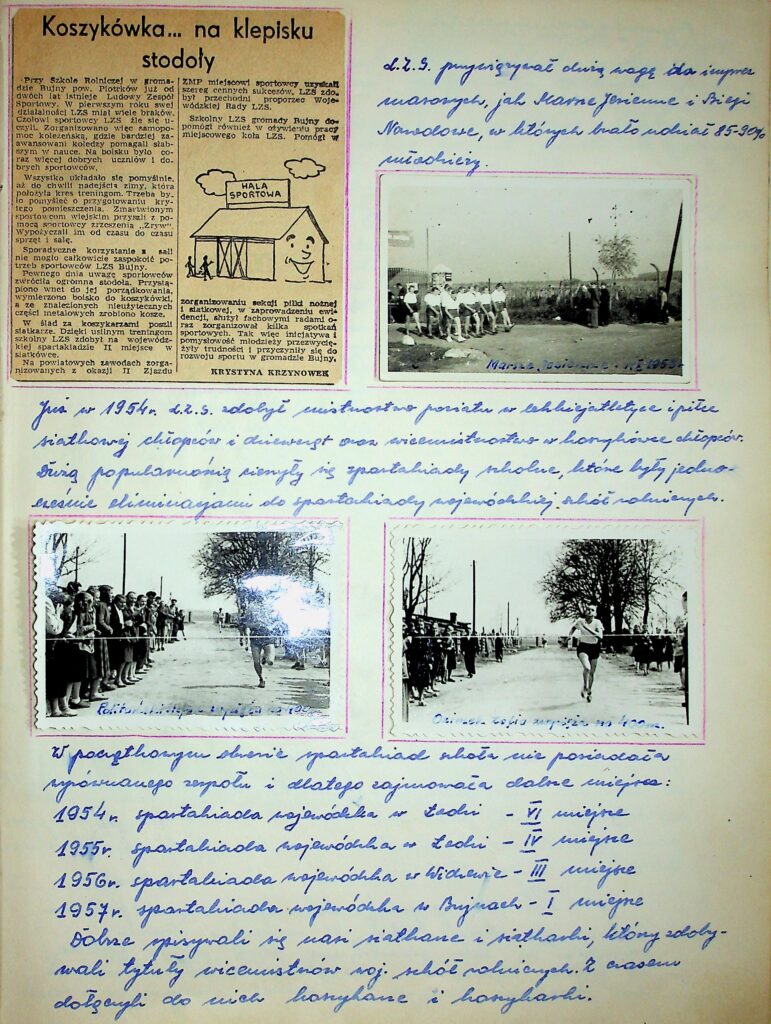 Koszykówka... na klepisku
stodoły
Przy Szkole Rolniczej w groma-
dzie Bujny pow. Piotrków już od
dwóch lat istnieje Ludowy Zespół
Sportowy. W pierwszym roku swej
działalności LZS miał wiele braków.
Czołowi sportowcy LZS źle się u-
czyli. Zorganizowano więc samopo-
moc koleżeńską, gdzie bardziej za-
awansowani koledzy pomagali słab-
szym w nauce. Na boisku było co-
raz więcej dobrych uczniów i do-
brych sportowców.
Wszystko układało się pomyślnie,
aż do chwili nadejścia zimy, która
położyła kres treningom. Trzeba by-
ło pomyśleć o przygotowaniu kry-
tego pomieszczenia. Zmartwionym
sportowcom wiejskim przyszli z po-
mocą sportowcy zrzeszenia „Zryw".
Wypożyczali im od czasu do czasu
sprzęt i salę.
Sporadyczne korzystanie z sali
nie mogło całkowicie zaspokoić po-
trzeb sportowców LZS Bujny.
Pewnego dnia uwagę sportowców
zwróciła ogromna stodoła. Przystą-
piono wnet do jej porządkowania,
wymierzono boisko do koszykówki,
a ze znalezionych nieużytecznych
części metalowych zrobiono kosze.
W ślad za koszykarzami poszli
siatkarze. Dzięki usilnym treningom
szkolny LZS zdobył na wojewódz-
kiej spartakiadzie II miejsce w
siatkówce.
Na powiatowych zawodach zorga-
nizowanych z okazji II Zjazdu
ZMP miejscowi sportowcy uzyskali
szereg cennych sukcesów. LZS zdo-
był przechodni proporzec Woje-
wódzkiej Rady LZS.
Szkolny LZS gromady Bujny do-
pomógł również w ożywieniu pracy
miejscowego koła LZS. Pomógł w
HALA
SPORTOWA
zorganizowaniu sekcji piłki nożnej
i siatkowej, w zaprowadzeniu ewi-
dencji, służył fachowymi radami o-
raz zorganizował kilka spotkań
sportowych. Tak więc inicjatywa i
pomysłowość młodzieży przezwycię-
żyły trudności i przyczyniły się do
rozwoju sportu w gromadzie Bujny.
KRYSTYNA KRZYNOWEK
L.Z.S. przywiązywał dużą wagę do imprez
masowych, jak Marsze Jesienne i Biegi
Narodowe, w których brało udział 85-90%
młodzieży.
Marsze Jesienne 1953r
Już w 1954r. L.Z.S. zdobył mistrzostwo powiatu w lekkiejatletyce i piłce
siatkowej chłopców i dziewcząt oraz wicemistrzostwo w koszykówce chłopców.
Dużą popularnością cieszyły się spartakiady szkolne, które były jedno-
cześnie eliminacjami do spartakiady wojewódzkiej szkół rolniczych.
zwycięża na
Osimek Zofia zwycięża na 400m.
W początkowym okresie spartakiad szkoła nie posiadała
wyrównanego zespołu i dlatego zajmowała dalsze miejsca:
1954r. spartakiada wojewódzka w Łodzi - VI miejsce
1955r. spartakiada wojewódzka w Łodzi - IV miejsce
1956r. spartakiada wojewódzka w Widzewie - III miejsce
1957r. spartakiada wojewódzka w Bujnach - I miejsce
Dobrze spisywali się nasi siatkarze i siatkarki, którzy zdoby-
wali tytuły wicemistrzów woj. szkół rolniczych. Z czasem
dołączyli do nich koszykarze i koszykarki.